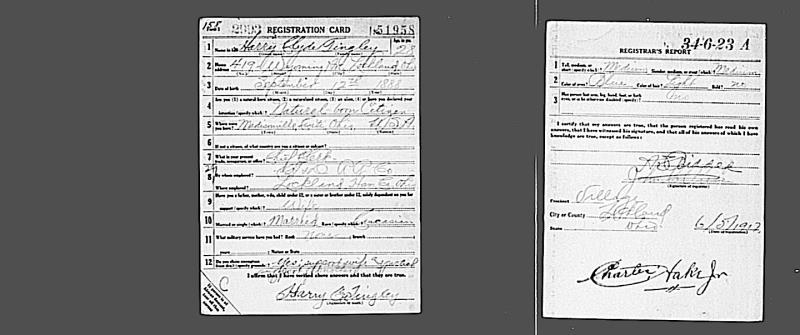 REGISTRATION CARD
No 51958
1 Name in full Harry Clyde Tingley Age, in yrs. 28
2 Home address 419 Wyoming Av. Lockland Ohio
3 Date of birth September 12th 1888
4 Are you (1) a natural born citizen, (2) a naturalized citizen, (3) an alien, (4) or have you declared your intention (specify which)? Natural born Citizen
5 Where were you born? Madisonville Ohio U.S.A
6 If not a citizen, of what country are you a citizen or subject?
7 What is your present trade, occupation, or office? Chief Clerk
8 By whom employed? R R Co
Where employed? Lockland Ham Co Ohio
9 Have you a father, mother, wife, child under 12, or a sister or brother under 12, solely dependent on you for support (specify which)? Wife
10 Married or single (which)? Married Race (specify which)? Caucasian
11 What military service have you had? Rank None ; branch
years ; Nation or State
12 Do you claim exemption from draft (specify grounds)? Yes, support wife
I affirm that I have verified above answers and that they are true.
Harry C Tingley
34-6-23 A
REGISTRAR'S REPORT
1 Tall, medium, or short (specify which)? Medium Slender, medium, or stout (which)? Medium
2 Color of eyes? Blue Color of hair? Light Bald? no
3 Has person lost arm, leg, hand, foot, or both eyes, or is he otherwise disabled (specify)? no
I certify that my answers are true, that the person registered has read his own answers, that I have witnessed his signature, and that all of his answers of which I have knowledge are true, except as follows:
(Signature of registrar)
Precinct
City or County Lockland
State Ohio
6/5/1917
(Date of registration)
Charles Hake Jr